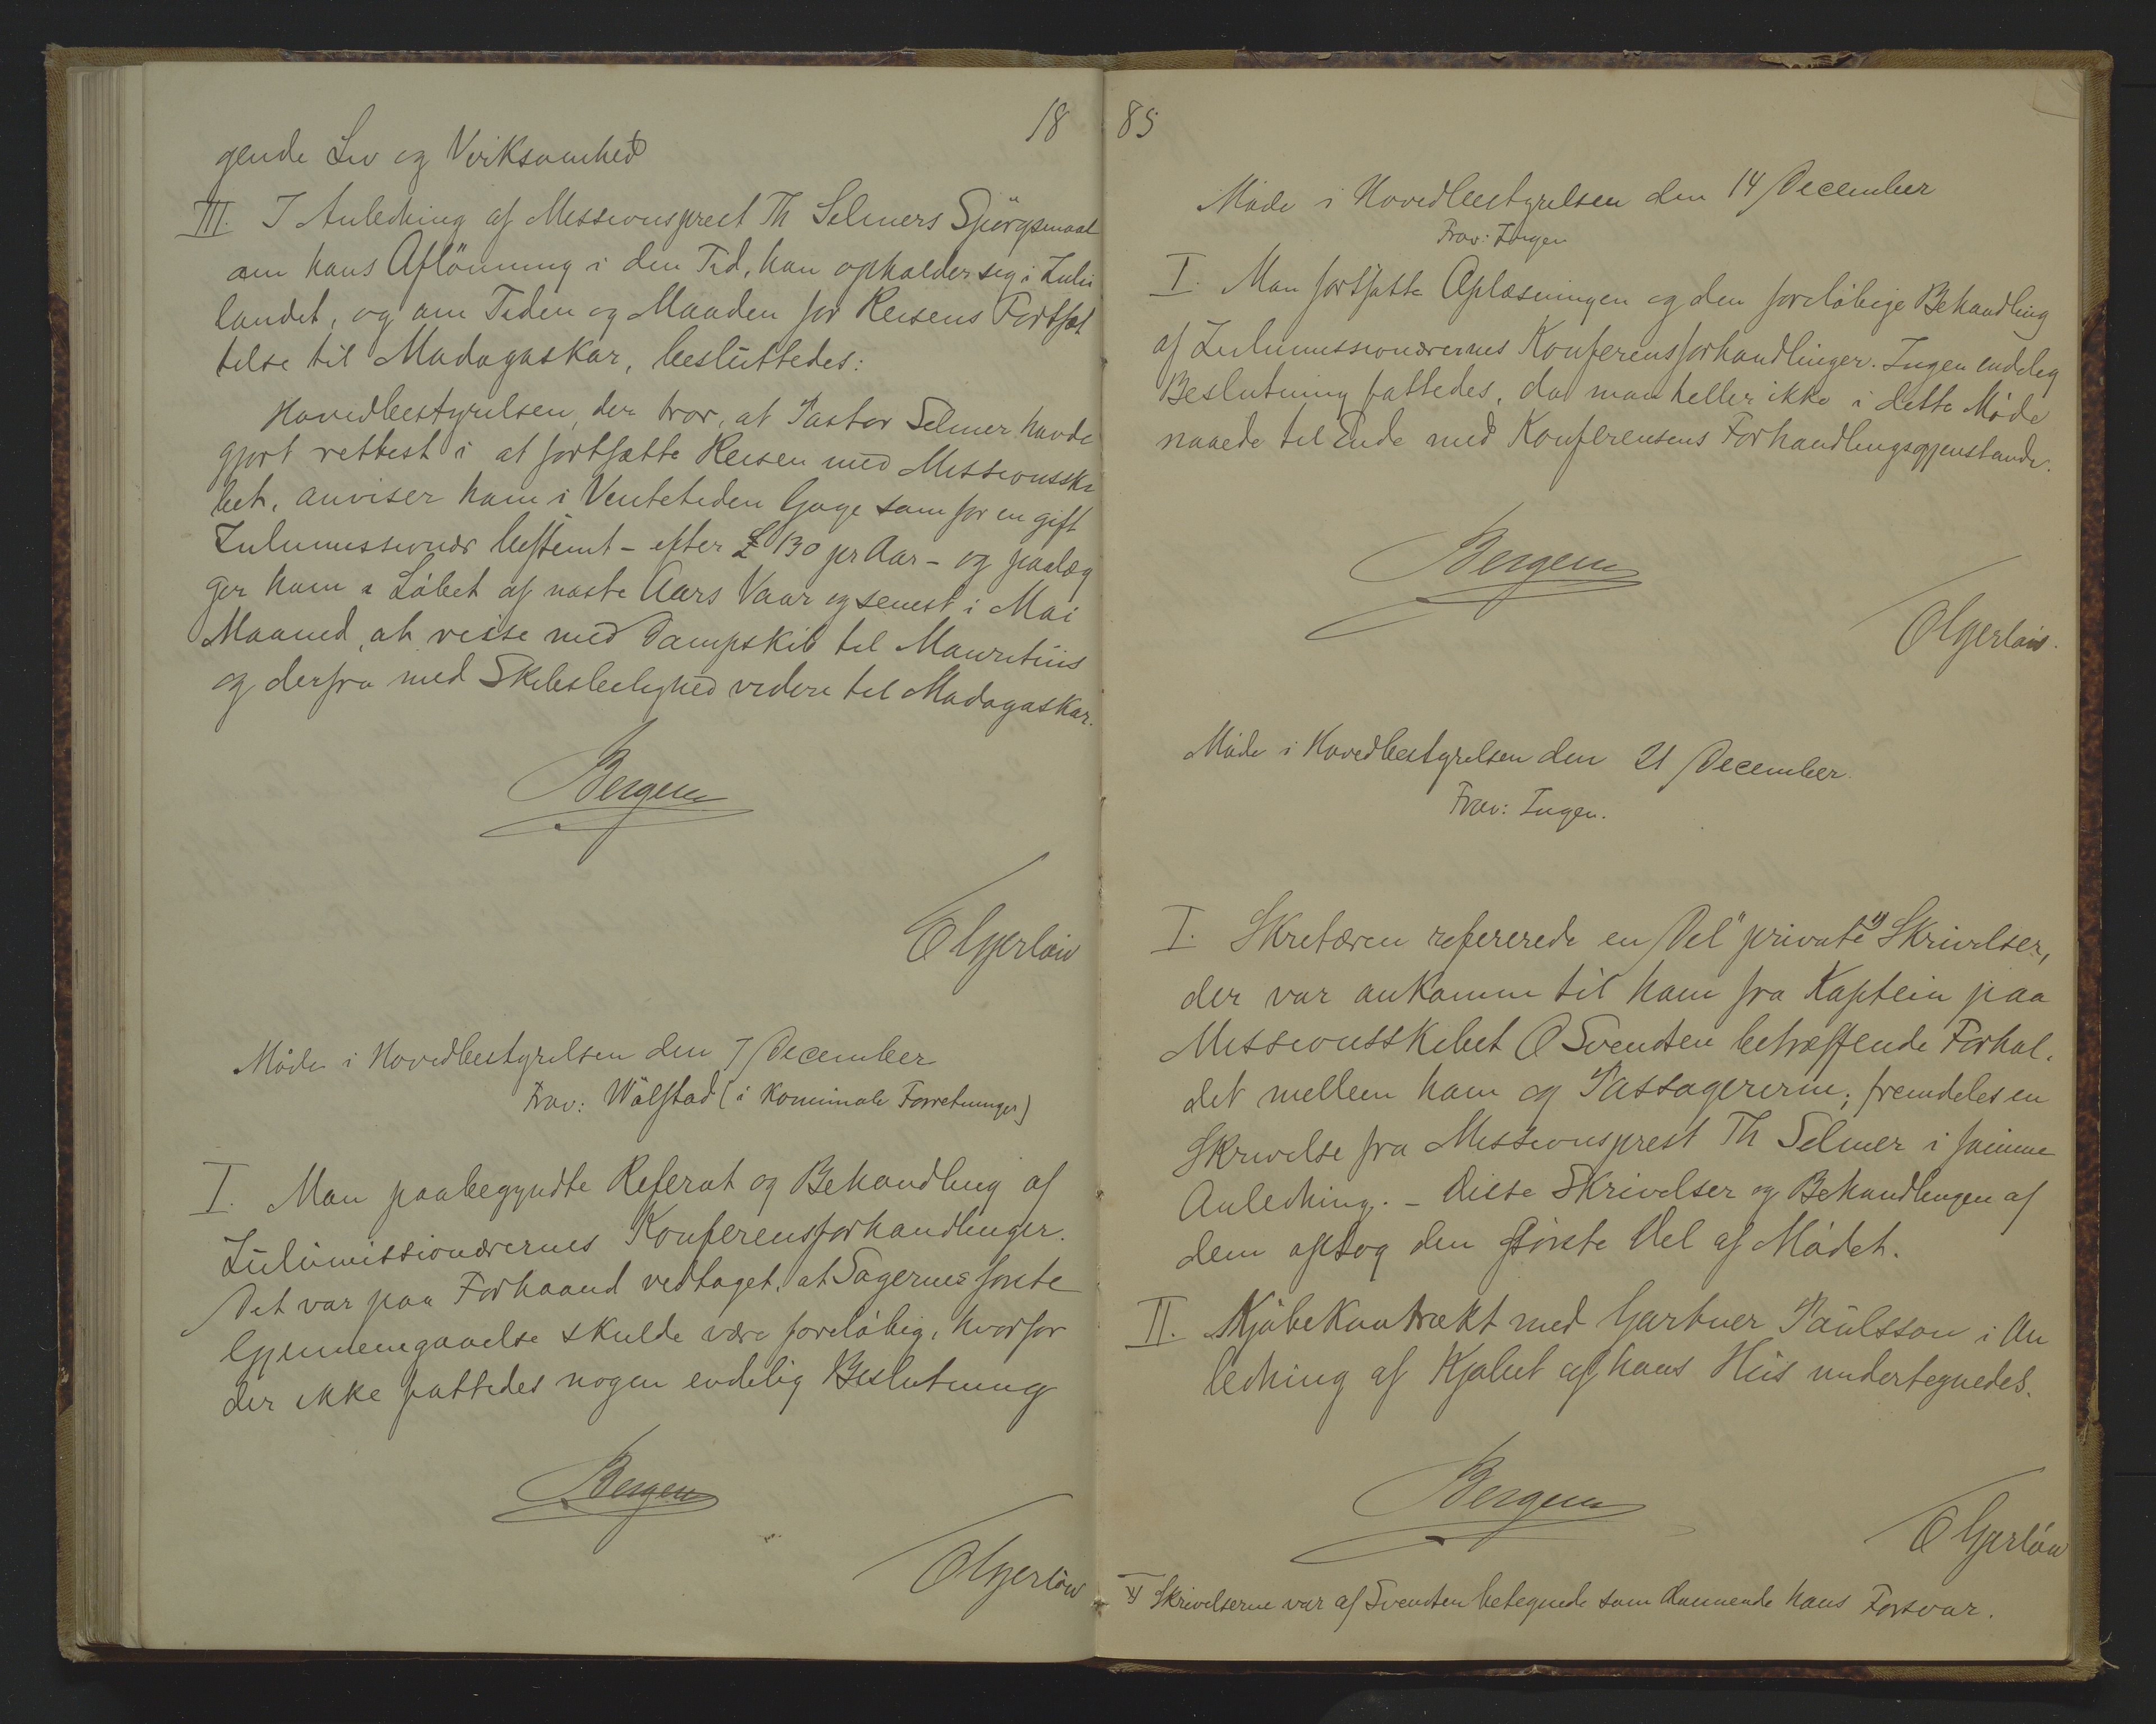 18
gende Liv og Virksomhed
III. I Anledning af Missionsprest Th Selmers Spörgsmaal
om hans Aflönning i den Tid, han opholder sig i Zulu
landet, og om Tiden og Maaden for Reisens Fortsæt
telse til Madagaskar, besluttedes:
Hovedbestyrelsen, der tror, at Pastor Selmer havde
gjort rettest i at fortsætte Reisen med Missionsski
bet, anviser ham i Ventetiden Gage som for en gift
Zulumissionær bestemt - efter £ 130 pr Aar - og paalæg
ger ham i Löbet af næste Aars Vaar og senest i Mai
Maaned, at reise med Dampskib til Mauritius
og derfra med Skibsleilighed videre til Madagaskar.
Bergem
O Gjerløw
Möde i Hovedbestyrelsen den 7 December
Frav: Wølstad (i Kommunale Forretninger)
I. Man paabegyndte Referat og Behandling af
Zulumissionærernes Konferensforhandlinger.
Det var paa Forhaand vedtaget, at Sagernes förste
Gjennemgaaelse skulde være foreløbig, hvorfor
der ikke fattedes nogen endelig Beslutning
Bergem
O Gjerløw
85
Möde i Hovedbestyrelsen den 14 December
Frav: Ingen
I. Man fortsatte Oplæsningen og den foreløbige Behandling
af Zulumissionærernes Konferensforhandlinger. Ingen endelig
Beslutning fattedes, da man heller ikke i dette Möde
naaede til Ende med Konferensens Forhandlingsgjenstande.
Bergem
O Gjerløw.
Möde i Hovedbestyrelsen den 21 December.
Frav: Ingen.
I. Skretæren refererede en Del "private" x) Skrivelser,
der var ankomne til ham fra Kaptein paa
Missionsskibet O Svendsen betræffende Forhol-
det mellem ham og Passagererne; fremdeles en
Skrivelse fra Missionsprest Th Selmer i samme
Anledning. - Disse Skrivelser og Behandlingen af
dem optog den störste Del af Mödet.
II. Kjöbekontrakt med Gartner Paulsson i An
ledning af Kjøbet af hans Hus undertegnedes.
Bergem
O Gjerløw
x) Skrivelserne var af Svendsen betegnede som dannende hans Forsvar.